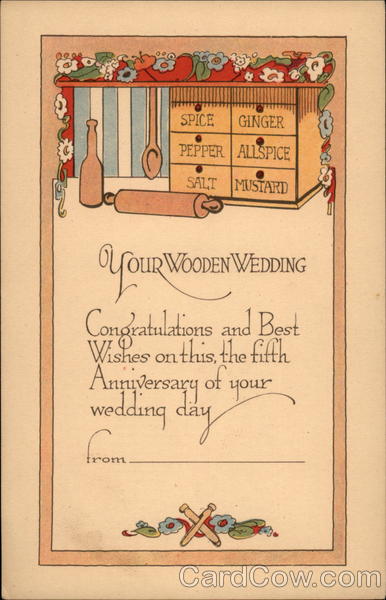 SPICE GINGER
PEPPER ALLSPICE
SALT MUSTARD
YOUR WOODEN WEDDING
Congratulations and Best
Wishes on this, the fifth
Anniversary of your
wedding day
from
CardCow.com